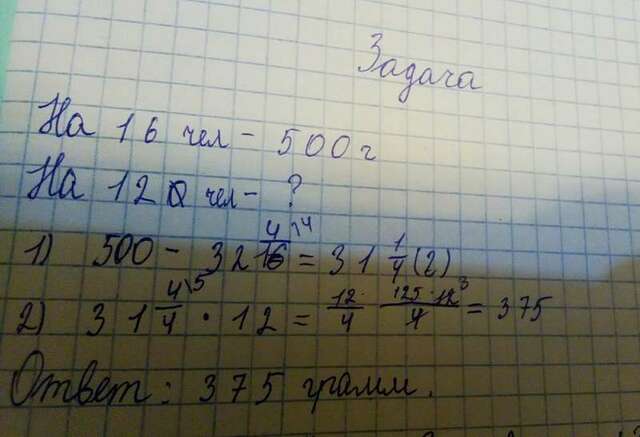 Задача
На 16 чел - 500 г
На 120 чел - ?
1) 500 - 32 4/16 \4 = 31 1/4 (г)
2) 31 4/4 \5 · 12 = 12/4 · 125·12 3/4 = 375
Ответ: 375 грамм.